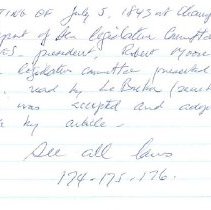 TING OF July 5, 1843 at Champ
report of the legislative Committee
president, Robert Moore
legislative committee presented
read by Le Breton (secret
was accepted and adop
by article -
See all laws
174-175-176.